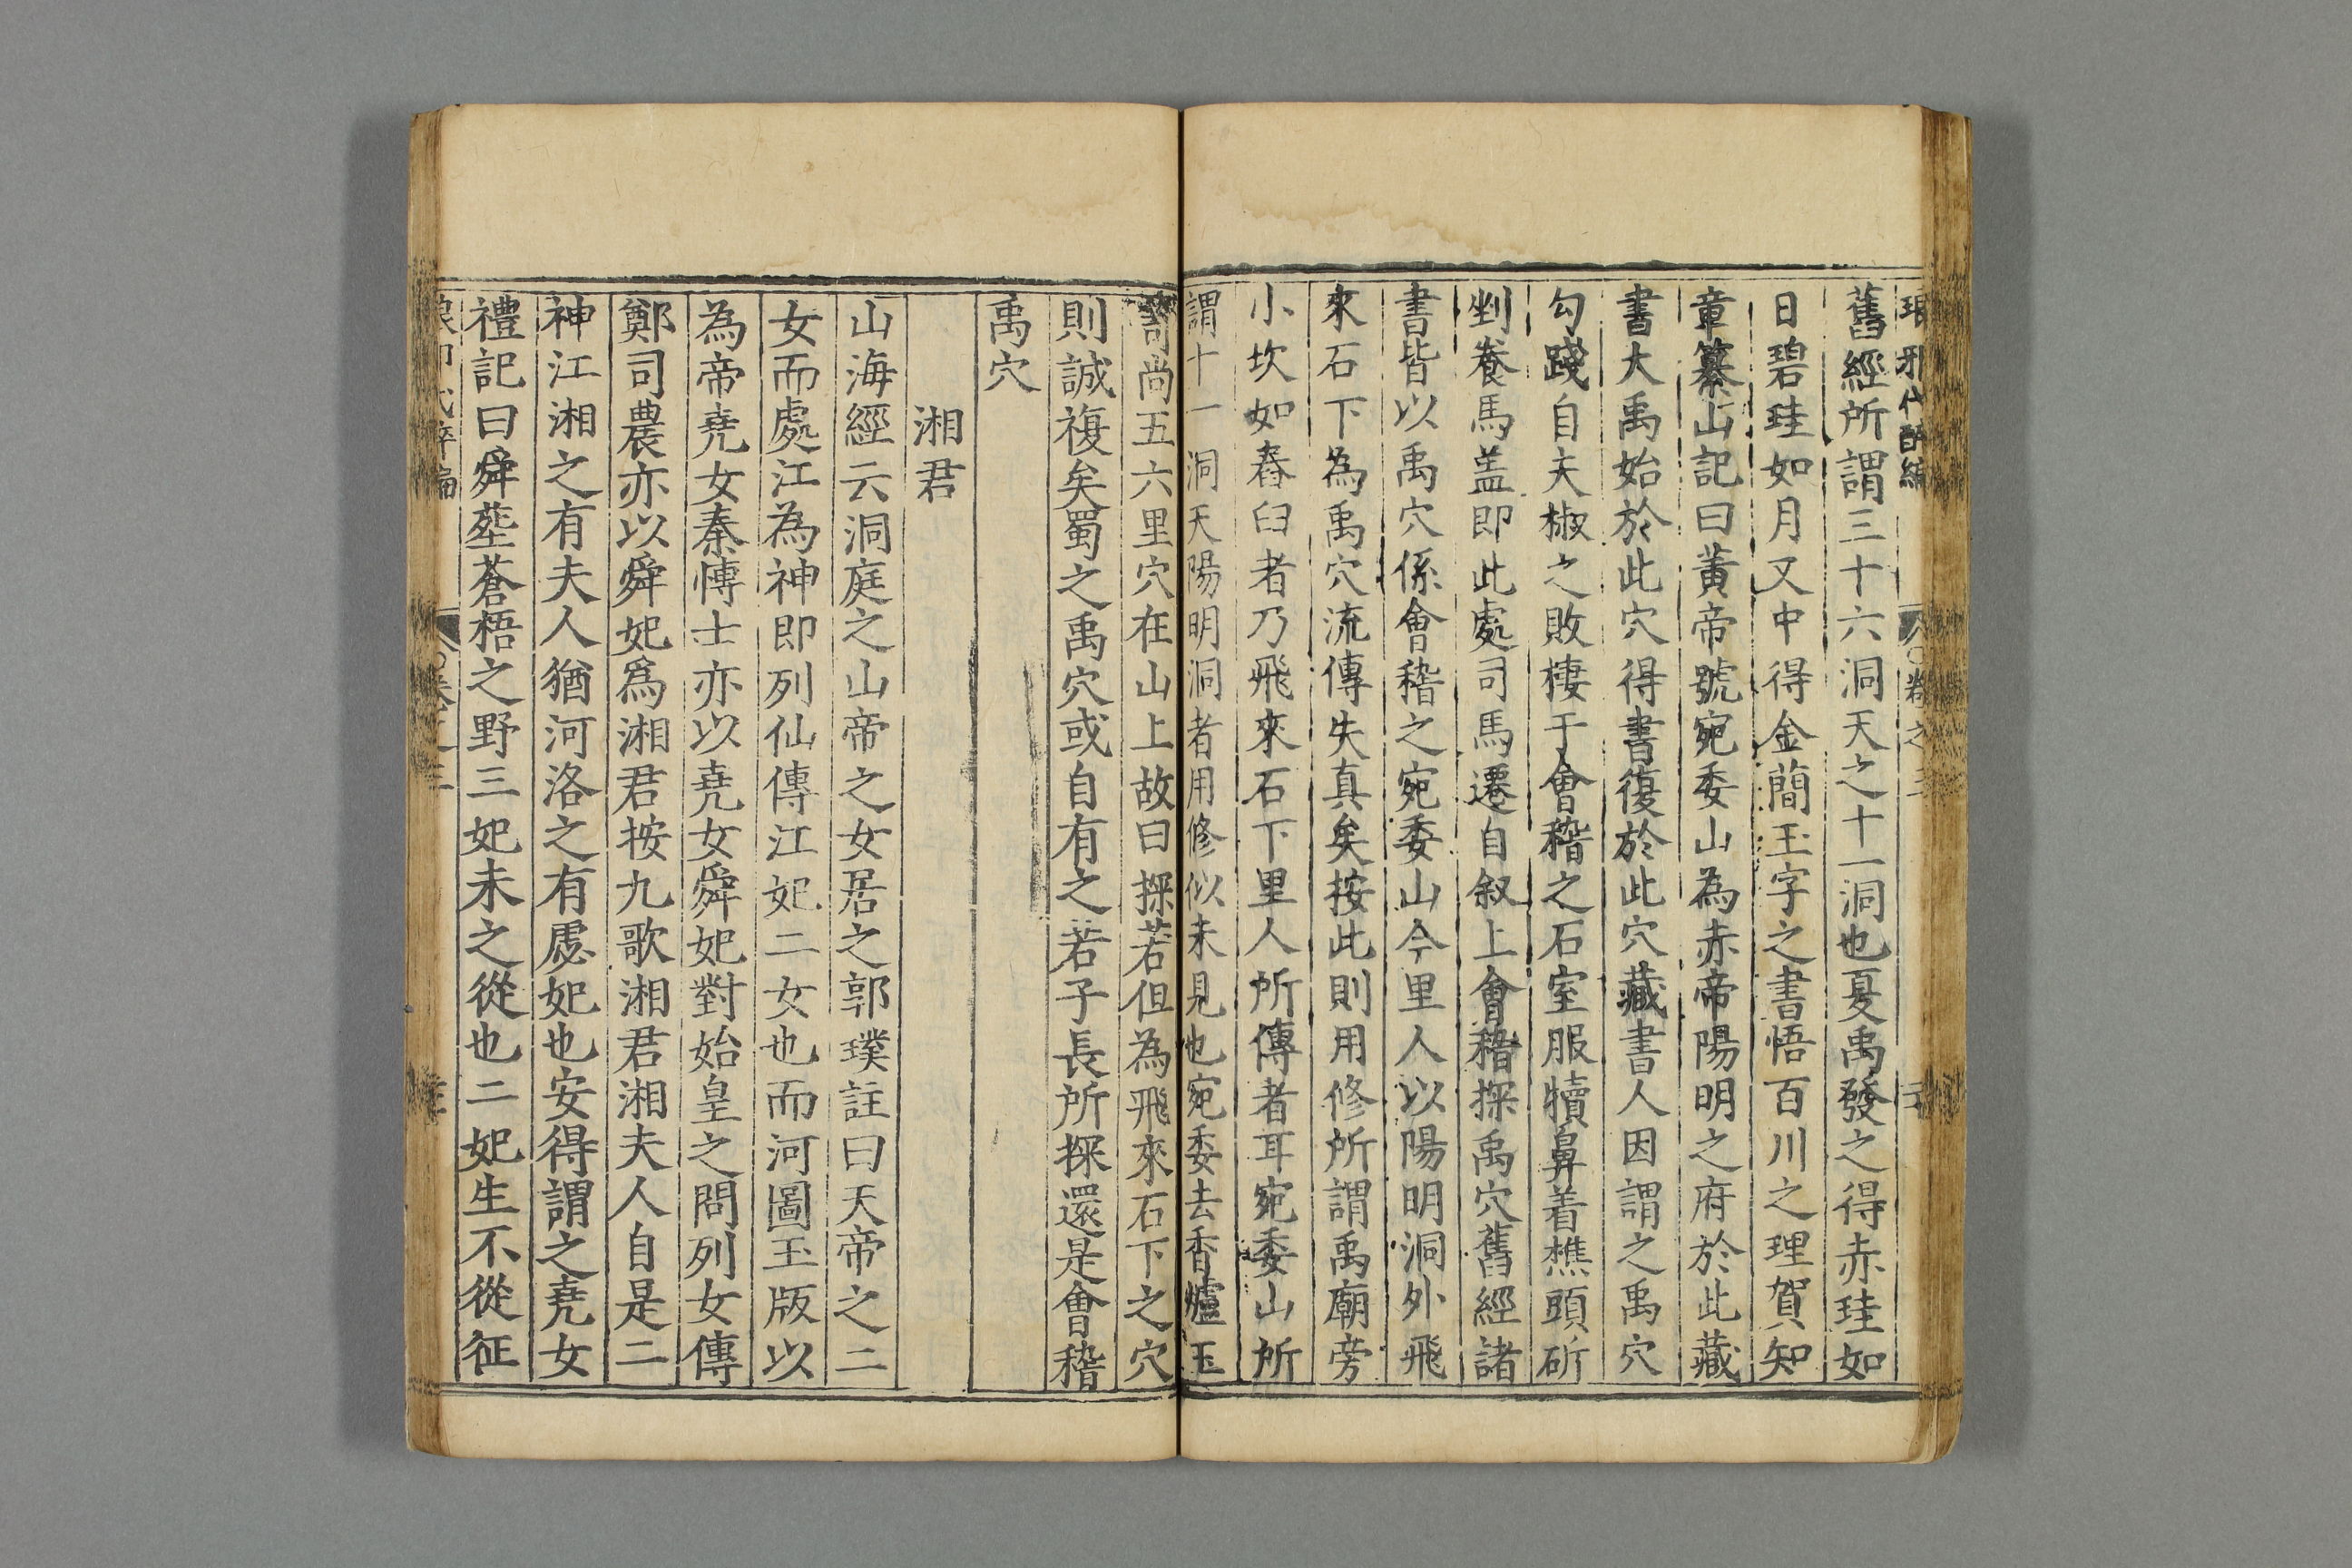 琅邪代醉編 卷之三
舊經所謂三十六洞天之十一洞也夏禹發之得赤珪如
日碧珪如月又中得金蕳玉字之書悟百川之理賀知
章纂山記曰黃帝號宛委山為赤帝陽明之府於此藏
書大禹始於此穴得書復於此穴藏書人因謂之禹穴
勾踐自夫椒之敗棲于會稽之石室服犢鼻着樵頭斫
剉養馬盖即此處司馬遷自叙上會稽探禹穴舊經諸
書皆以禹穴係會稽之宛委山今里人以陽明洞外飛
來石下為禹穴流傳失真矣按此則用修所謂禹廟旁
小坎如舂臼者乃飛來石下里人所傳者耳宛委山所
謂十一洞天陽明洞者用修似未見也宛委去香爐玉
笥尚五六里穴在山上故曰探若但為飛來石下之穴
則誠複矣蜀之禹穴或自有之若子長所探還是會稽
禹穴
湘君
山海經云洞庭之山帝之女居之郭璞註曰天帝之二
女而處江為神即列仙傳江妃二女也而河圖玉版以
為帝堯女秦博士亦以堯女舜妃對始皇之問列女傳
鄭司農亦以舜妃爲湘君按九歌湘君湘夫人自是二
神江湘之有夫人猶河洛之有虙妃也安得謂之堯女
禮記曰舜塟蒼梧之野三妃未之從也二妃生不從征